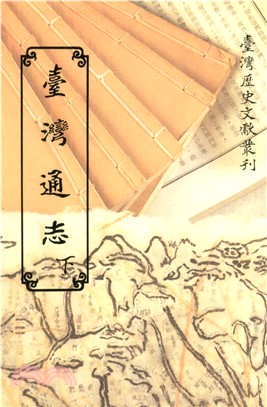 臺灣歷史文獻叢刊
臺灣通志
下